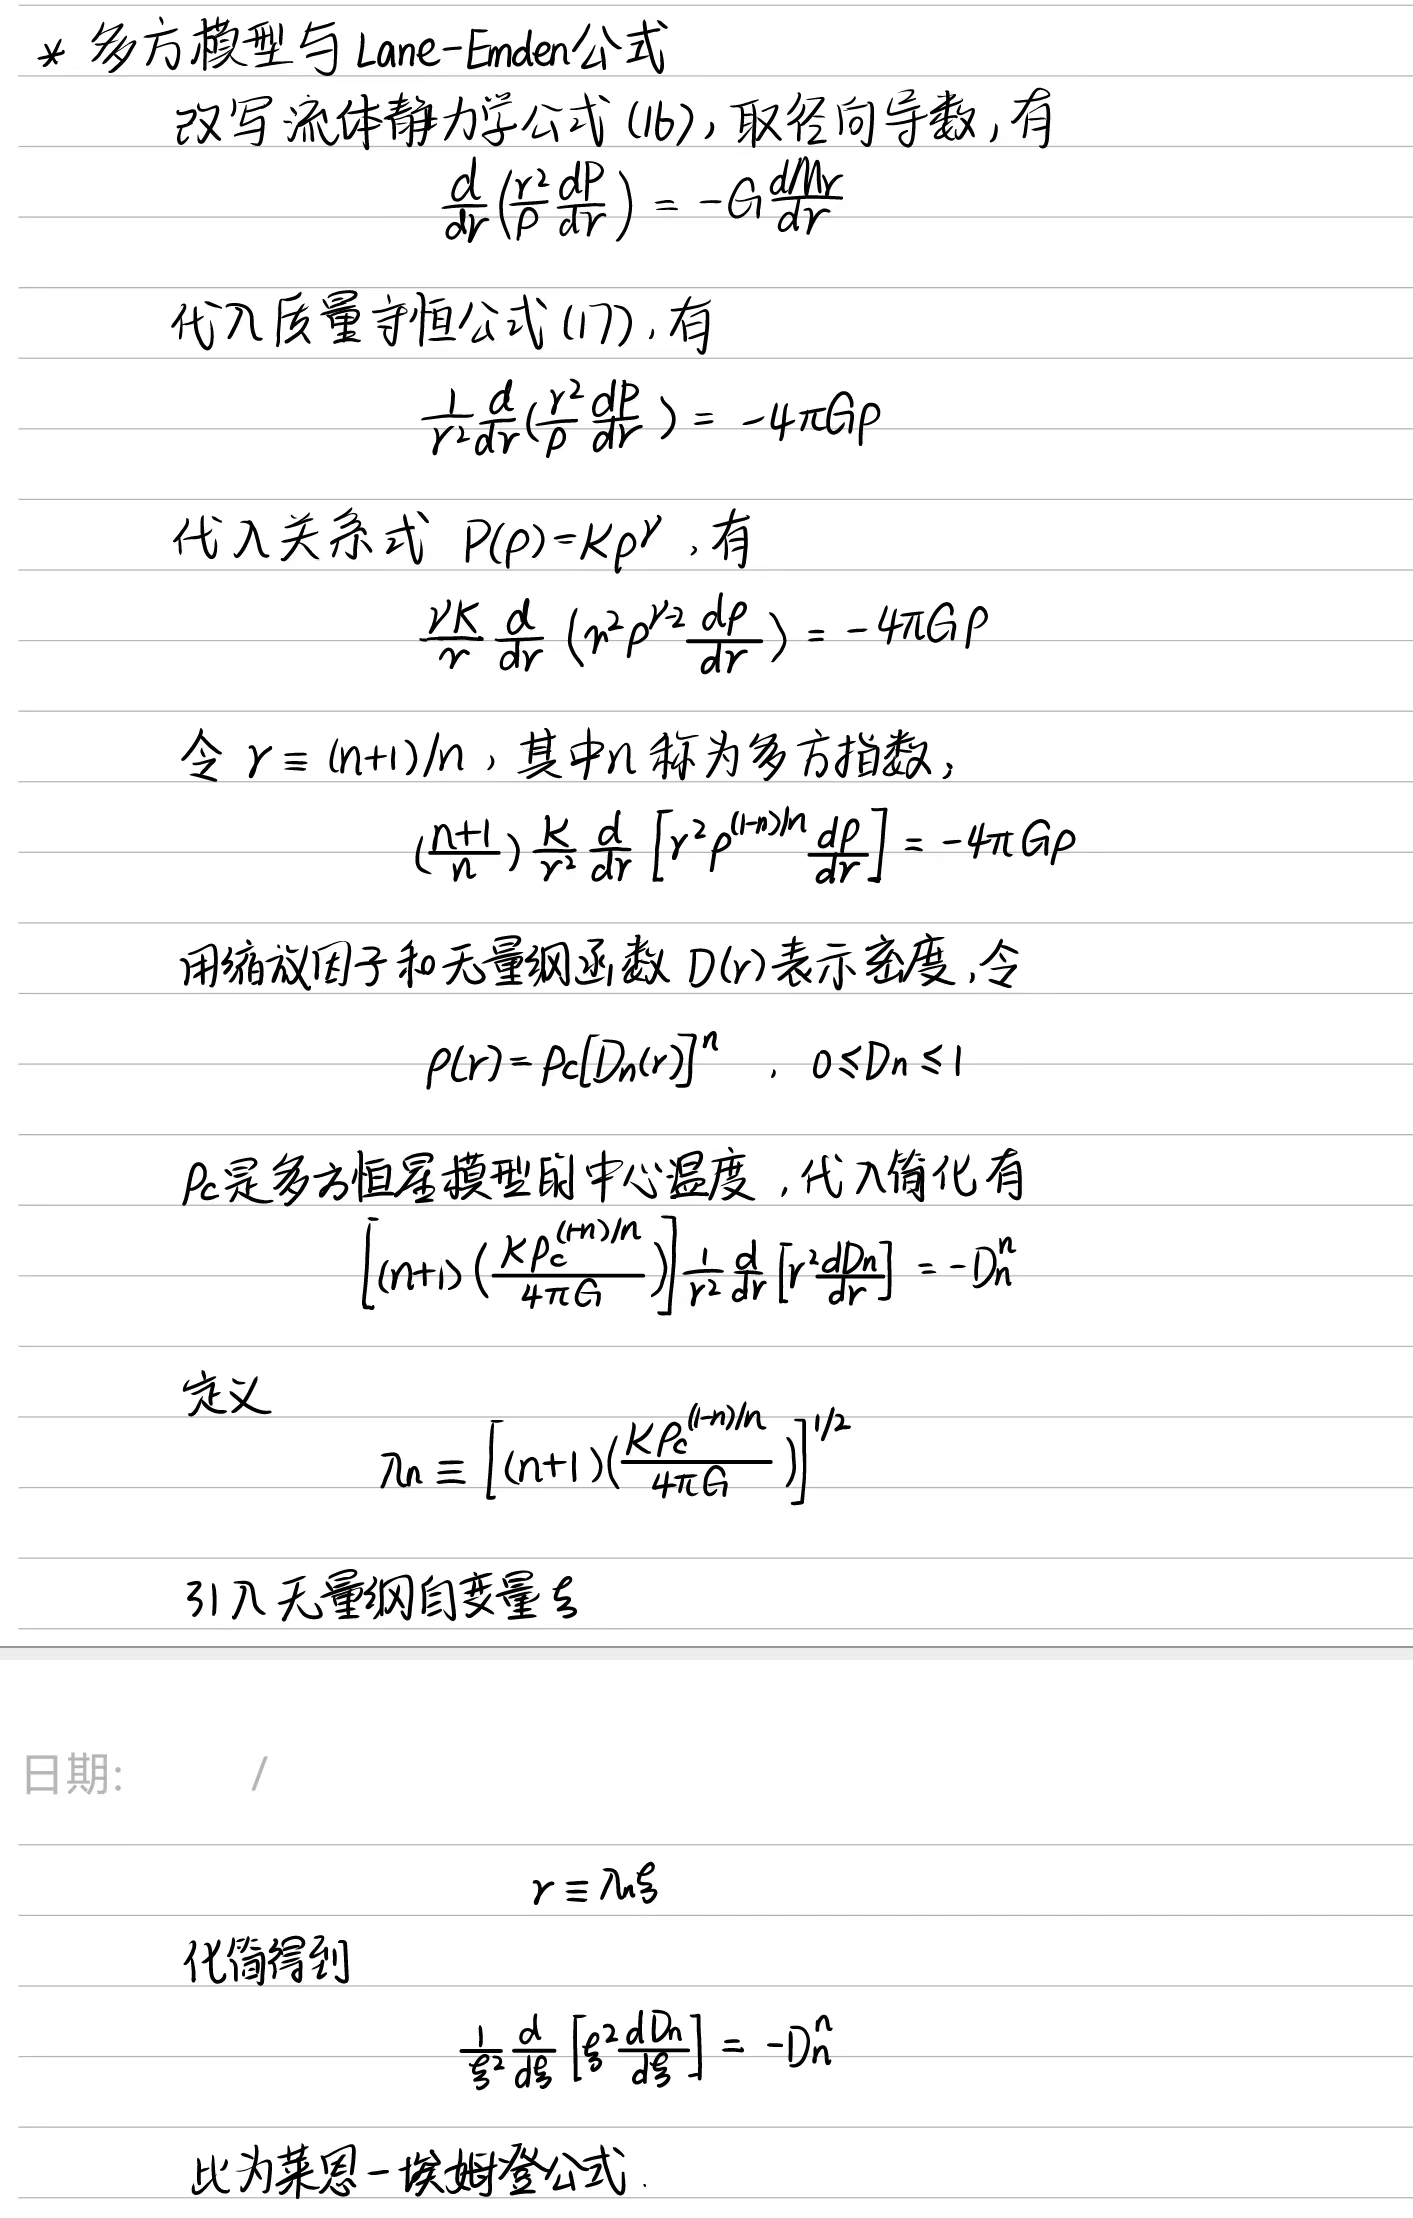 * 多方模型与Lane-Emden公式
改写流体静力学公式(16),取径向导数,有
d/dr(r²/ρ dP/dr) = -G dMr/dr
代入质量守恒公式(17),有
1/r² d/dr(r²/ρ dP/dr) = -4πGρ
代入关系式 P(ρ)=Kρ^γ,有
γK/r d/dr (r²ρ^(γ-2) dρ/dr) = -4πGρ
令 γ≡(n+1)/n,其中n称为多方指数,
((n+1)/n) K/r² d/dr [r²ρ^((1-n)/n) dρ/dr] = -4πGρ
用缩放因子和无量纲函数 D(r)表示密度,令
ρ(r)=ρc[Dn(r)]^n , 0≤Dn≤1
ρc是多方恒星模型的中心温度,代入简化有
[(n+1)(Kρc^((1-n)/n)/4πG)] 1/r² d/dr [r² dDn/dr] = -Dn^n
定义
λn≡[(n+1)(Kρc^((1-n)/n)/4πG)]^(1/2)
引入无量纲自变量ξ
日期: /
r≡λnξ
化简得到
1/ξ² d/dξ [ξ² dDn/dξ] = -Dn^n
此为莱恩-埃姆登公式.